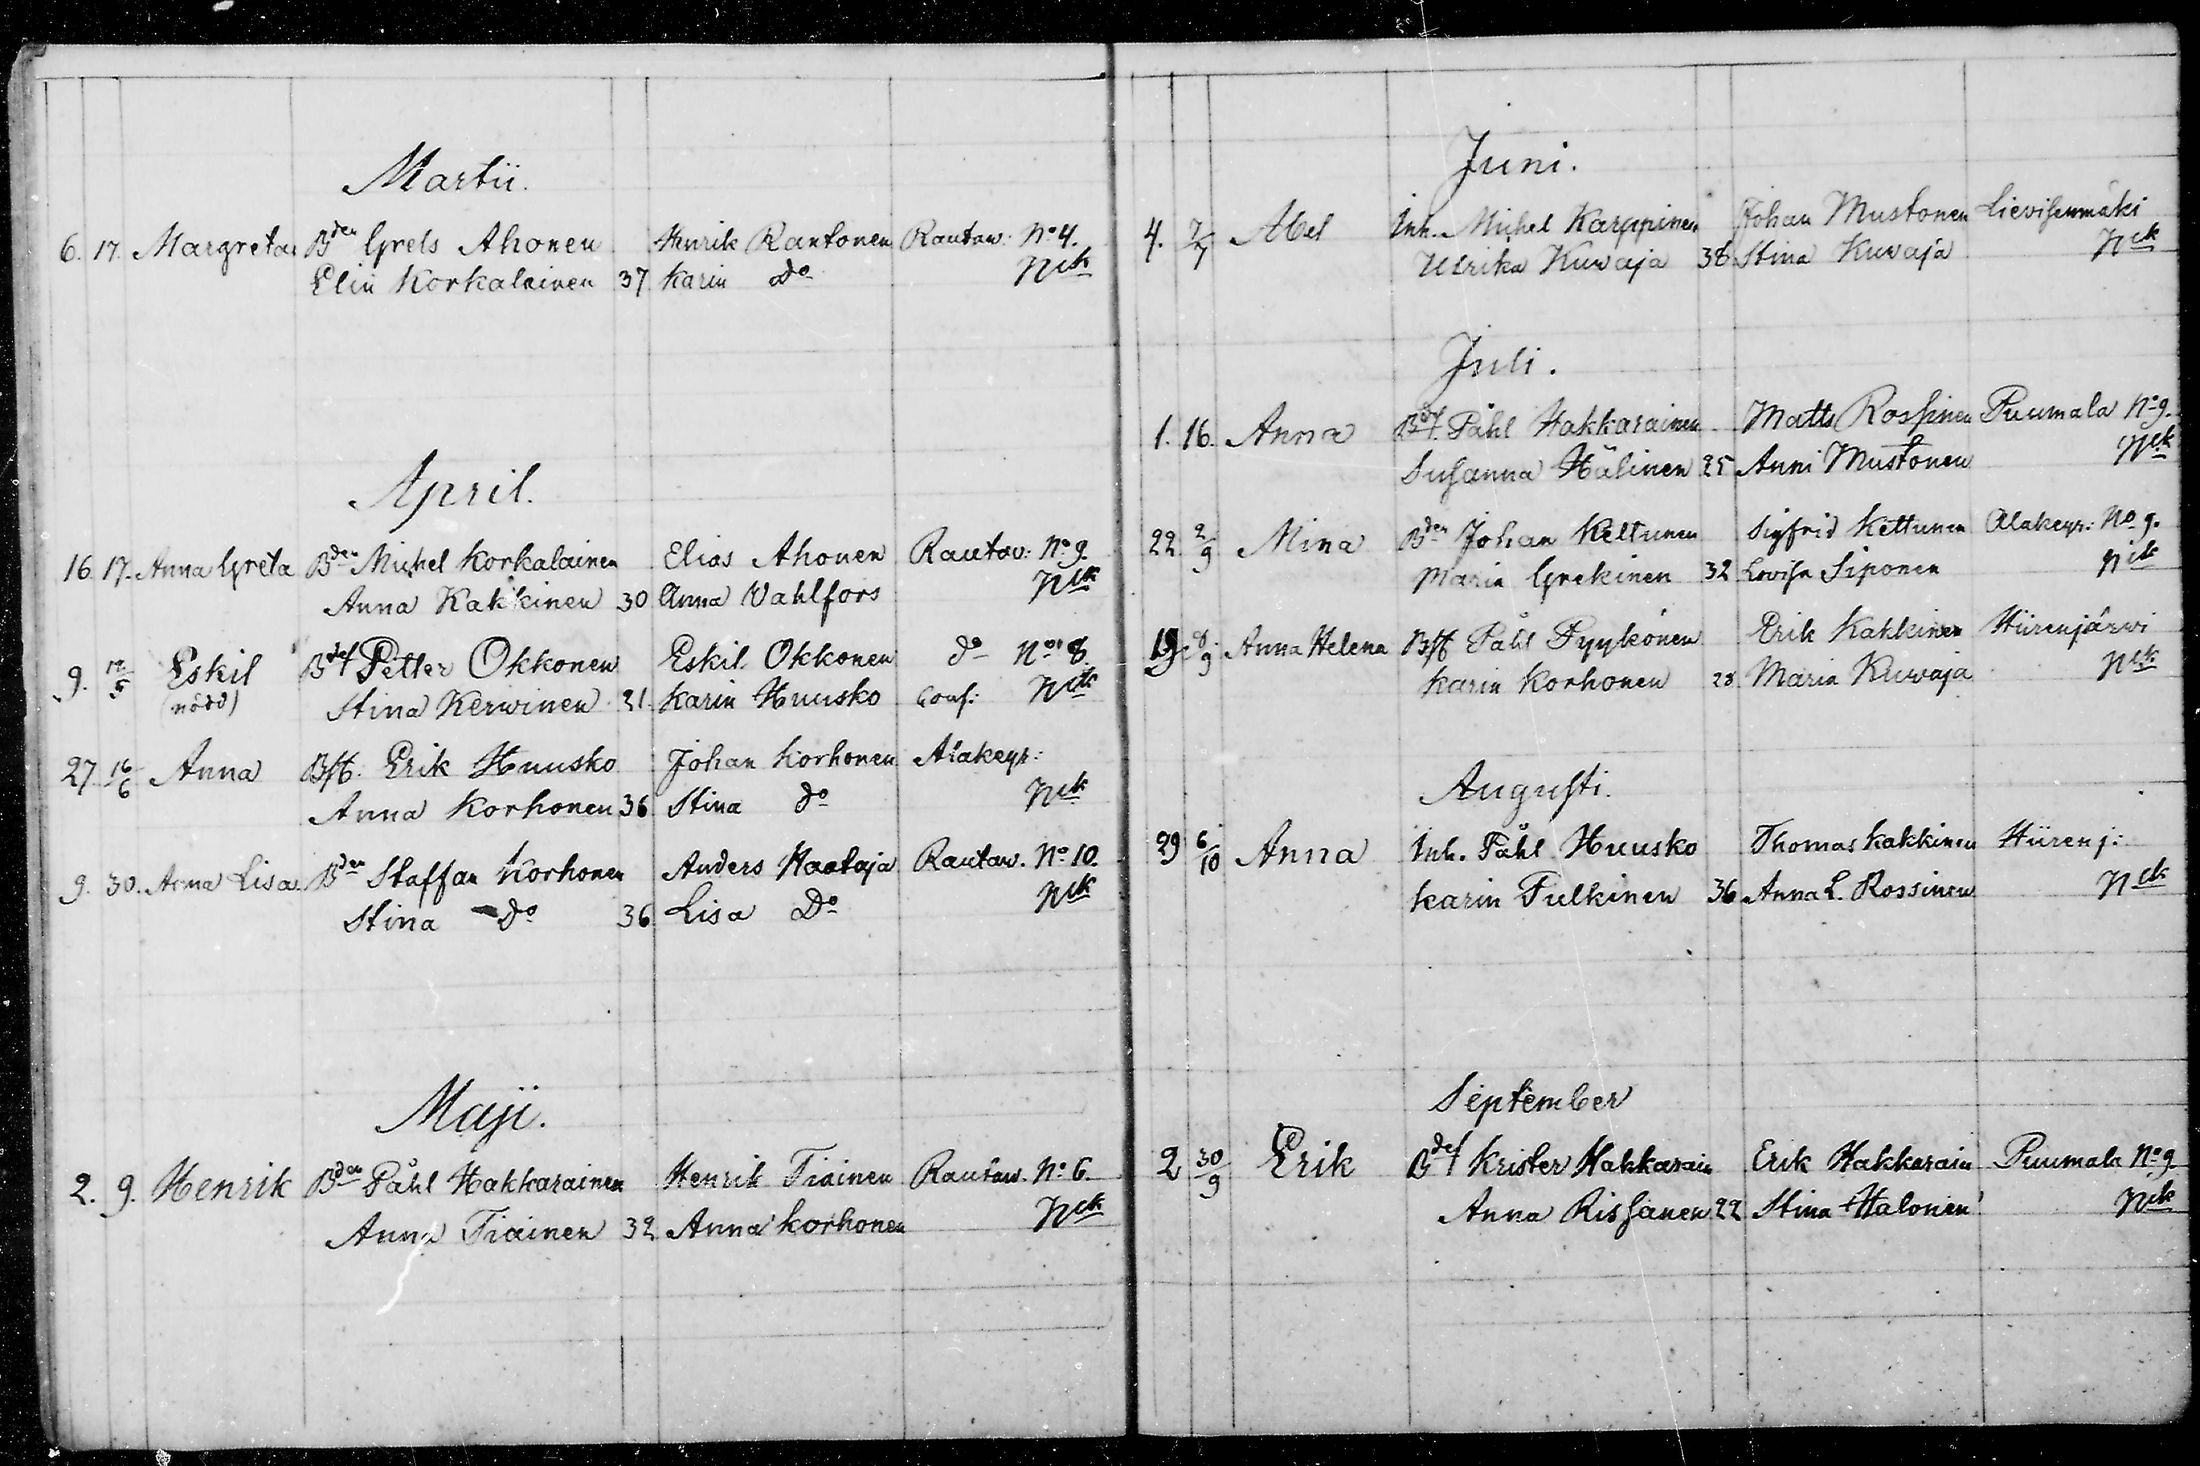 Martii.
6. 17. Margreta Bden Grels Ahonen Henrik Rautonen Rautaw: No 4.
Elin Korkalainen 37 Karin Do Nck
April.
16. 17. Anna Greta Bden Michel Korkalainen Elias Ahonen Rautav: No 9.
Anna Kakkinen 30 Anna Vahlfors Nck
9. 12/5 Eskil Bdef Petter Okkonen Eskil Okkonen do No 8.
(nödd) Stina Kerwinen 21. Karin Huusko Conf: Nck
27 16/6 Anna Bff. Erik Huusko Johan Korhonen Alakeyr:
Anna Korhonen 36 Stina do Nck
9. 30. Anna Lisa Bden Staffan Korhonen Anders Haataja Rautaw. No 10.
Stina do 36 Lisa Do Nck
Maji.
2. 9. Henrik Bden Påhl Hakkarainen Henrik Tiainen Rautaw. No 6.
Anna Tiainen 32 Anna Korhonen Nck
Juni.
4. 7/7 Abel Inh. Michel Karppinen Johan Mustonen Lievisenmäki
Ulrika Kuvaja 38 Stina Kuvaja Nck
Juli.
1. 16. Anna Bdf. Påhl Hakkarainen Matts Rossinen Puumala No 9.
Susanna Hälinen 25 Anni Mustonen Nck
22. 2/9 Mina Bden Johan Keltunen Sigfrid Kettunen Alakeyr: No 9.
Maria Grekinen 32 Lovisa Siponen Nck
19 8/9 Anna Helena Bff Påhl Pyykönen Erik Kakkinen Hiirenjärwi
Karin Korhonen 28. Maria Kuwaja Nck
Augusti.
29 6/10 Anna Inh. Påhl Huusko Thomas Kakkinen Hiirenj:
Karin Tulkinen 36 Anna L. Rossinen Nck
September
2 30/9 Erik Bdef Krister Hakkarain Erik Hakkarain Puumala No 9.
Anna Rissanen 22 Stina Halonen Nck